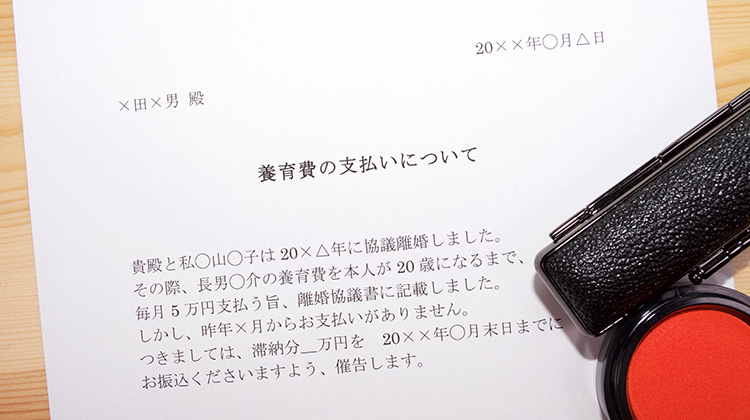 20××年〇月△日
×田×男 殿
養育費の支払いについて
貴殿と私〇山〇子は20×△年に協議離婚しました。
その際、長男〇介の養育費を本人が20歳になるまで、
毎月5万円支払う旨、離婚協議書に記載しました。
しかし、昨年×月からお支払いがありません。
つきましては、滞納分__万円を　20××年〇月末日までに
お振込くださいますよう、催告します。